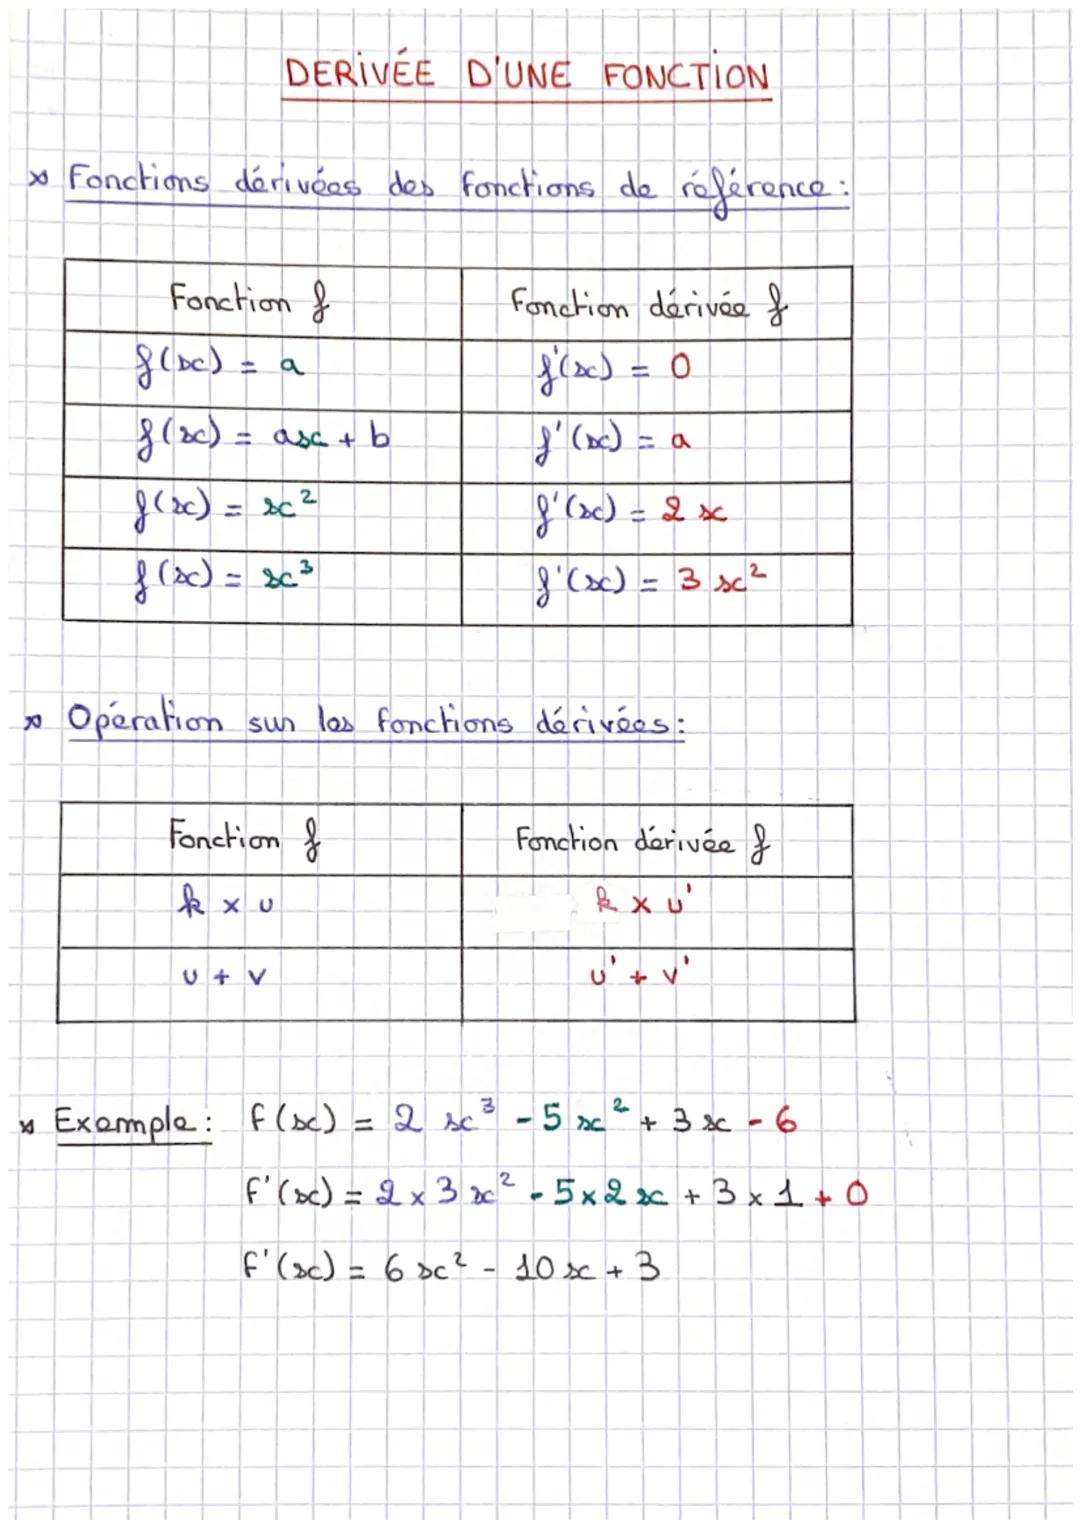 DERIVÉE D'UNE FONCTION
Fonctions dérivées des fonctions de référence :
Fonction f | Fonction dérivée f
f(x) = a | f'(x) = 0
f(x) = ax + b | f'(x) = a
f(x) = x² | f'(x) = 2x
f(x) = x³ | f'(x) = 3x²
Opération sur les fonctions dérivées :
Fonction f | Fonction dérivée f
k × u | k × u'
u + v | u' + v'
Exemple : f(x) = 2x³ - 5x² + 3x - 6
f'(x) = 2 × 3x² - 5 × 2x + 3 × 1 + 0
f'(x) = 6x² - 10x + 3